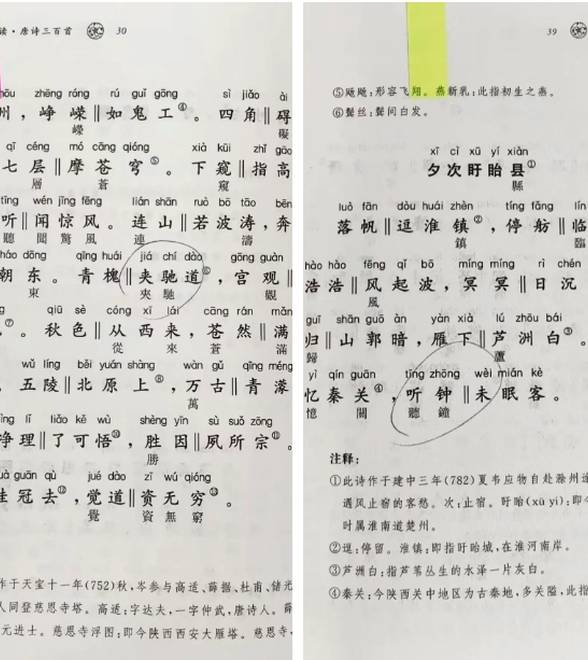 读·唐诗三百首 30
zhēng róng rú guǐ gōng sì jiǎo ài
州，峥嵘‖如鬼工④。四角‖碍
嶸 礙
qī céng mó cāng qióng xià kuī zhǐ gāo
七层‖摩苍穹⑤。下窥‖指高
層 蒼 窺
tīng wén jīng fēng lián shān ruò bō tāo bēn
听‖闻惊风。连山‖若波涛，奔
聽 聞 驚 風 連 濤
cháo dōng qīng huái jiá chí dào gōng guàn
朝东。青槐‖夹驰道⑥，宫观‖
東 夾 馳 觀
qiū sè cóng xī lái cāng rán mǎn
⑦。秋色‖从西来，苍然‖满
從 來 蒼 滿
wǔ líng běi yuán shàng wàn gǔ qīng méng
五陵‖北原上⑧，万古‖青濛
萬
jìng lǐ liǎo kě wù shèng yīn sù suǒ zōng
净理‖了可悟⑩，胜因‖夙所宗⑪。
勝
guà guān qù jué dào zī wú qióng
挂冠去⑫，觉道‖资无穷⑬。
覺 資 無 窮
作于天宝十一年(752)秋，岑参与高适、薛据、杜甫、储光
人同登慈恩寺塔。高适：字达夫，一字仲武，唐诗人。薛
元进士。慈恩寺浮图：即今陕西西安大雁塔。慈恩寺，
39
⑤飏飏：形容飞翔。燕新乳：此指初生之燕。
⑥鬓丝：鬓间白发。
xī cì xū yí xiàn
夕次盱眙县①
縣
luò fān dòu huái zhèn tíng fǎng lín
落帆‖逗淮镇②，停舫‖临
鎮 臨
hào hào fēng qǐ bō míng míng rì chén
浩浩‖风起波，冥冥‖日沉
風
guī shān guō àn yàn xià lú zhōu bái
归‖山郭暗，雁下‖芦洲白③。
歸 蘆
yì qín guān tīng zhōng wèi mián kè
忆秦关④，听钟‖未眠客。
憶 關 聽 鐘
注释：
①此诗作于建中三年(782)夏韦应物自赴滁州途
遇风止宿的客愁。次：止宿。盱眙(xū yí)：即今
时属淮南道楚州。
②逗：停留。淮镇：即指盱眙城，在淮河南岸。
③芦洲白：指芦苇丛生的水泽一片灰白。
④秦关：今陕西关中地区为古秦地，多关隘，此指